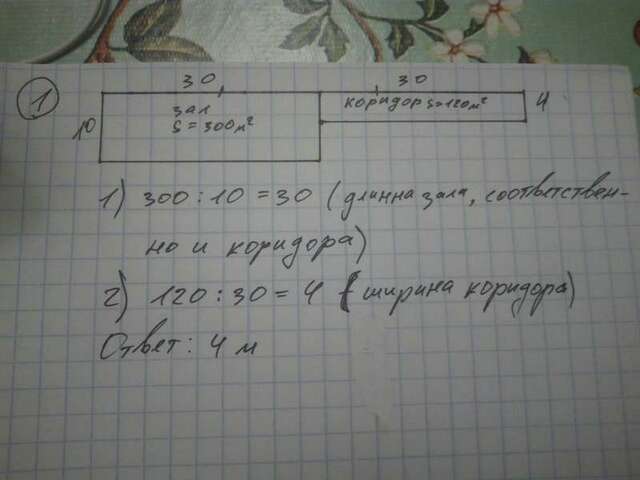 1
30 30
зал коридор S=120м² 4
10 S=300м²
1) 300:10=30 (длинна зала, соответствен-
но и коридора)
2) 120:30=4 (ширина коридора)
Ответ: 4 м